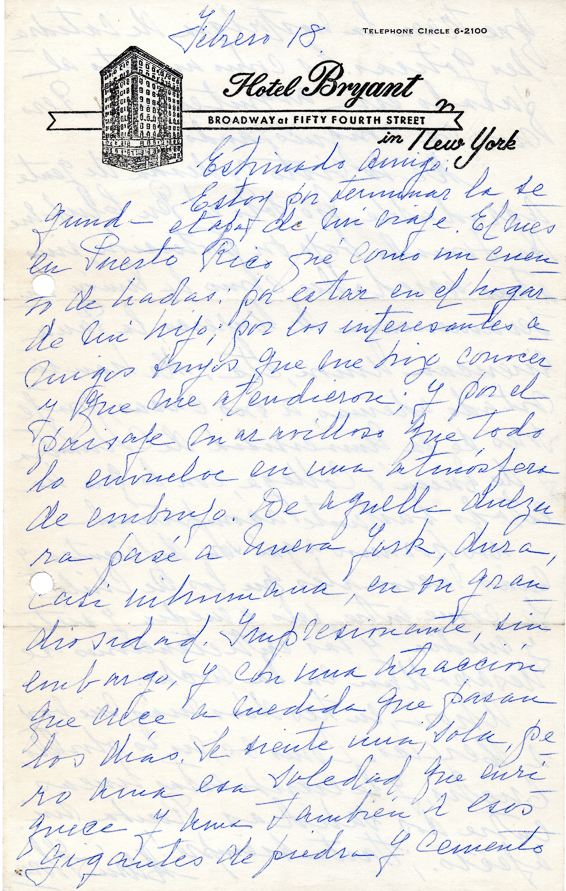 Febrero 18.
TELEPHONE CIRCLE 6-2100
Hotel Bryant
BROADWAY at FIFTY FOURTH STREET
in New York
Estimado amigo:
Estoy por terminar la se
gund- etapa de mi viaje. El mes
en Puerto Rico fué como un cuen
to de hadas: por estar en el hogar
de mi hijo; por los interesantes a-
migos suyos que me hizo conocer
y que me atendieron; y por el
paisaje maravilloso que todo
lo envuelve en una atmósfera
de embrujo. De aquella dulzu-
ra pasé a Nueva York, dura,
casi inhumana, en su gran
diosidad. Impresionante, sin
embargo, y con una atracción
que crece a medida que pasan
los días. Se siente una, sola, pe-
ro ama esa soledad que enri-
quece y ama también a esos
gigantes de piedra y cemento